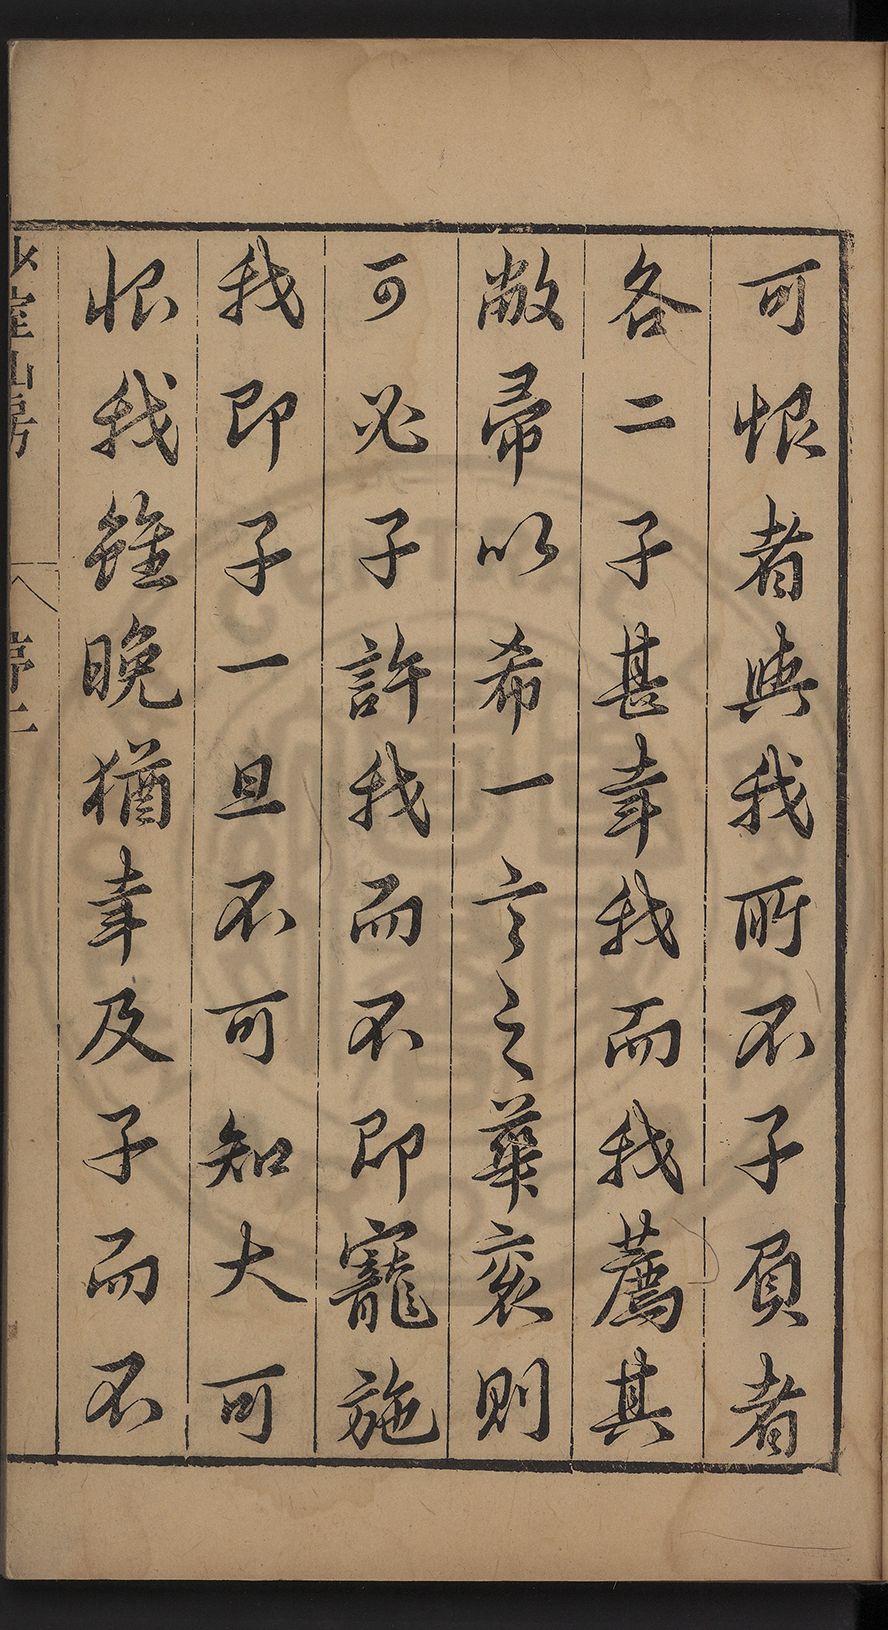 可恨者與我所不子負者
各二子甚幸我而我薦其
敝帚以希一言之華衮則
可必子許我而不即寵施
我即子一旦不可知大可
恨我雖晚猶幸及子而不
少室山房 序 二